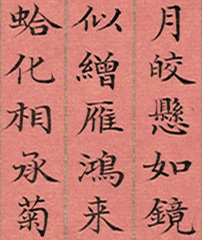 月皎懸如鏡
似繒雁鴻来
蛤化相承菊